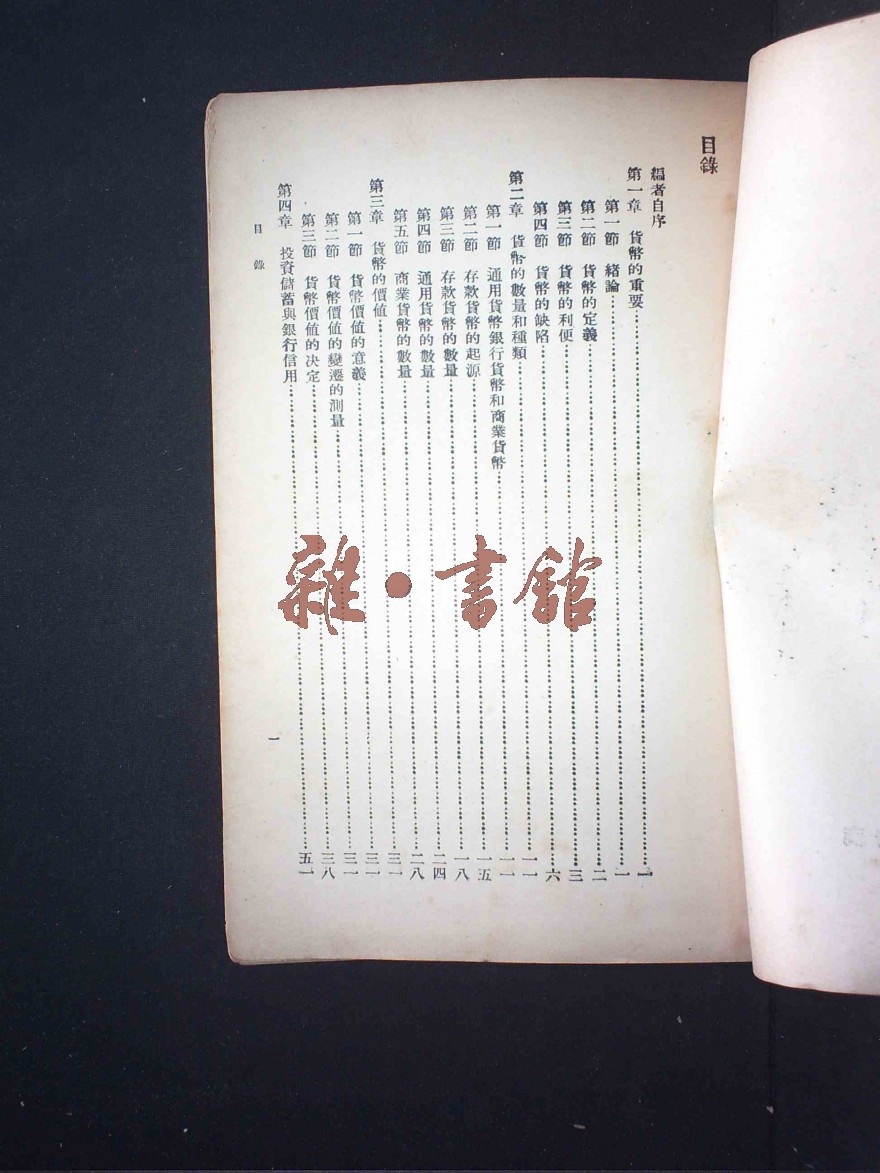 目錄
編者自序
第一章 貨幣的重要……一
第一節 緒論……一
第二節 貨幣的定義……二
第三節 貨幣的利便……三
第四節 貨幣的缺陷……六
第二章 貨幣的數量和種類……一一
第一節 通用貨幣銀行貨幣和商業貨幣……一一
第二節 存款貨幣的起源……一五
第三節 存款貨幣的數量……一八
第四節 通用貨幣的數量……二四
第五節 商業貨幣的數量……二八
第三章 貨幣的價值……三一
第一節 貨幣價值的意義……三一
第二節 貨幣價值的變遷的測量……三一
第三節 貨幣價值的決定……三八
第四章 投資儲蓄與銀行信用……五一
目錄
一
雜·書館